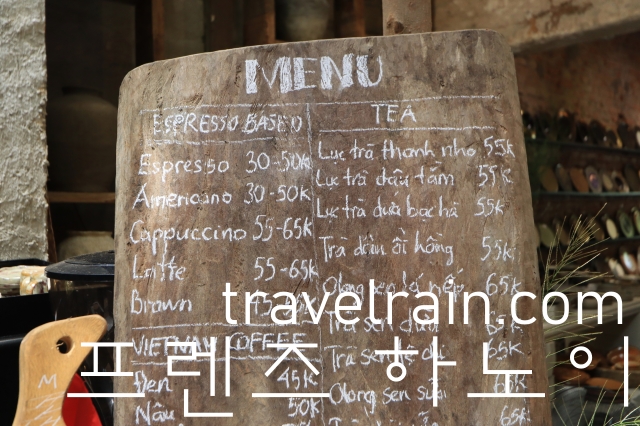 MENU
ESPRESSO BASED
Espresso 30-50k
Americano 30-50k
Cappuccino 55-65k
Latte 55-65k
Brown
VIETNAM COFFEE
Đen 45k
Nâu 50k
TEA
Lục trà thanh nho 55k
Lục trà dâu tằm 55k
Lục trà dưa bạc hà 55k
Trà dâm ổi hồng 55k
Olong lá nếp 65k
Trà sen
Trà sen 65k
Olong sen sữa 65k
65k
travelrain.com
프렌즈 하노이